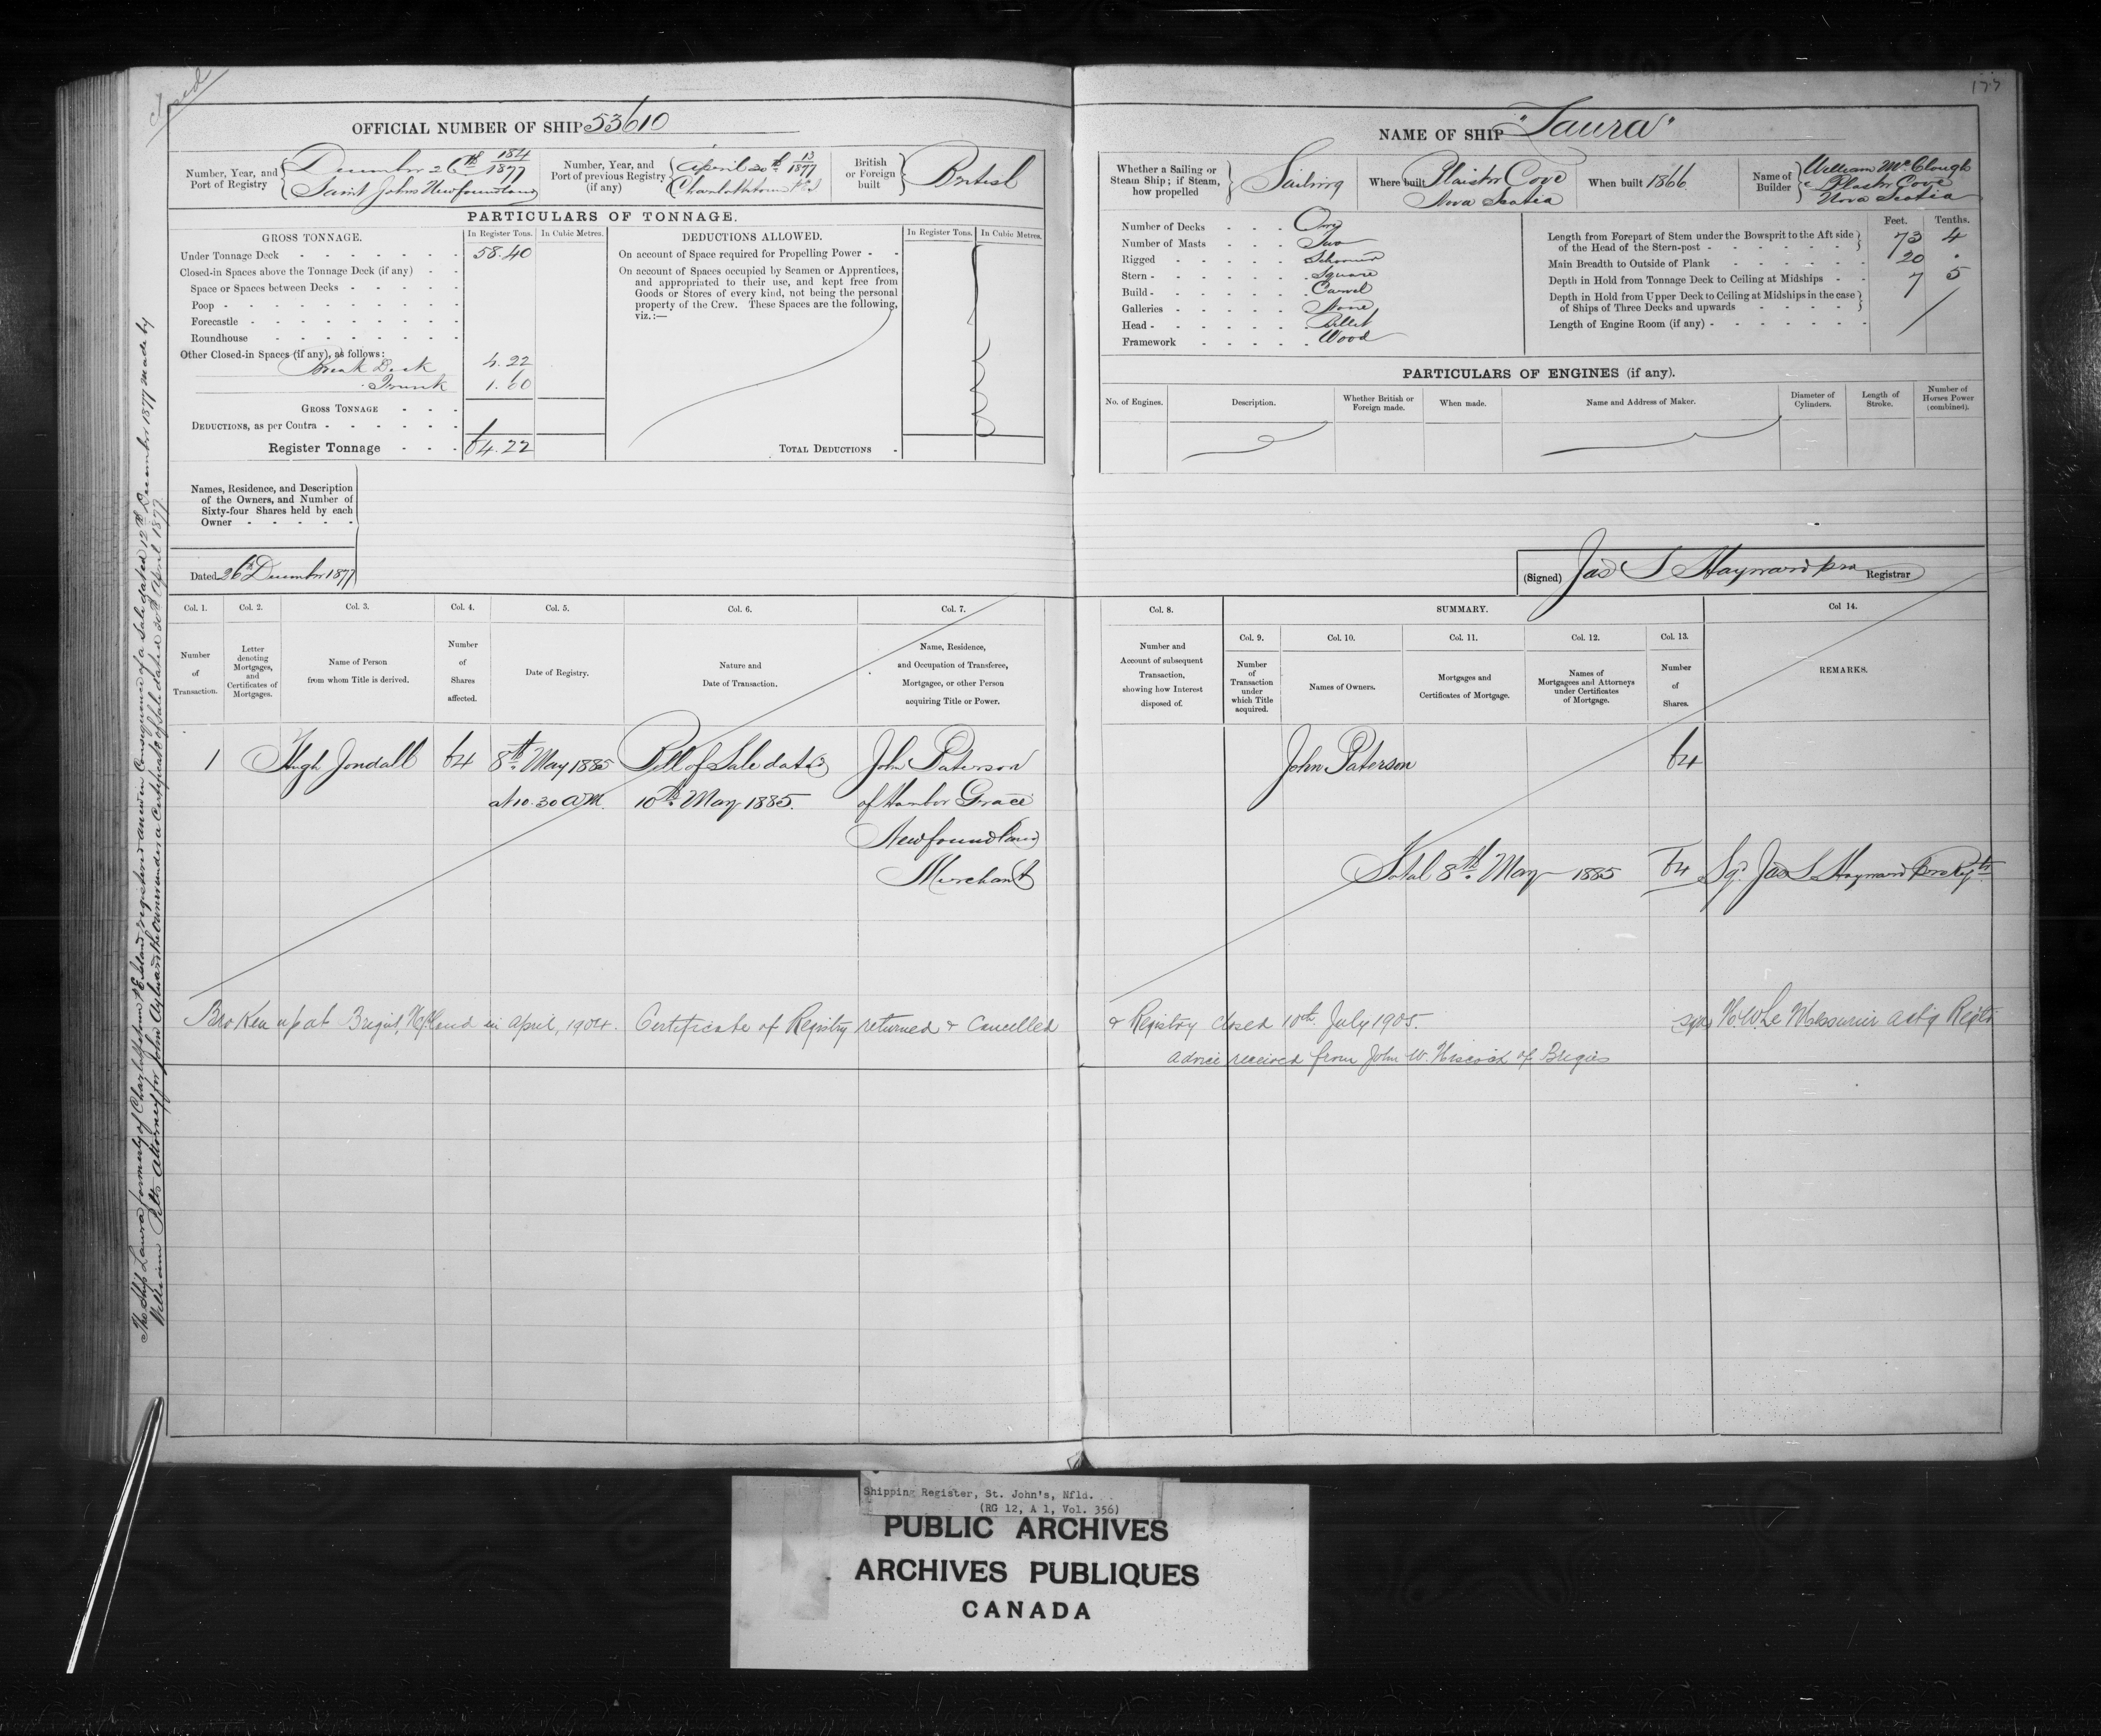 Closed
177
OFFICIAL NUMBER OF SHIP 53610
NAME OF SHIP "Laura"
Number, Year, and Port of Registry
December 26th 184/1877
Saint Johns Newfoundland
Number, Year, and Port of previous Registry (if any)
April 20th 13/1877
Charlottetown P.E.I
British or Foreign built
British
Whether a Sailing or Steam Ship; if Steam, how propelled
Sailing
Where built Plaister Cove
Nova Scotia
When built 1866
Name of Builder
William McClough
Plaster Cove
Nova Scotia
PARTICULARS OF TONNAGE.
GROSS TONNAGE.
In Register Tons. In Cubic Metres.
Under Tonnage Deck 58.40
Closed-in Spaces above the Tonnage Deck (if any)
Space or Spaces between Decks
Poop
Forecastle
Roundhouse
Other Closed-in Spaces (if any), as follows:
Break Deck 4.22
Trunk 1.60
GROSS TONNAGE
DEDUCTIONS, as per Contra
Register Tonnage 64.22
DEDUCTIONS ALLOWED.
In Register Tons. In Cubic Metres.
On account of Space required for Propelling Power
On account of Spaces occupied by Seamen or Apprentices,
and appropriated to their use, and kept free from
Goods or Stores of every kind, not being the personal
property of the Crew. These Spaces are the following,
viz.:—
TOTAL DEDUCTIONS
Number of Decks One
Number of Masts Two
Rigged Schooner
Stern Square
Build Carvel
Galleries None
Head Billet
Framework Wood
Feet. Tenths.
Length from Forepart of Stem under the Bowsprit to the Aft side of the Head of the Stern-post 73 4
Main Breadth to Outside of Plank 20 .
Depth in Hold from Tonnage Deck to Ceiling at Midships 7 5
Depth in Hold from Upper Deck to Ceiling at Midships in the case of Ships of Three Decks and upwards
Length of Engine Room (if any)
PARTICULARS OF ENGINES (if any).
No. of Engines. Description. Whether British or Foreign made. When made. Name and Address of Maker. Diameter of Cylinders. Length of Stroke. Number of Horses Power (combined).
Names, Residence, and Description
of the Owners, and Number of
Sixty-four Shares held by each
Owner
Dated 26th December 1877
(Signed) Jas S Hayward pro Registrar
Col. 1. Col. 2. Col. 3. Col. 4. Col. 5. Col. 6. Col. 7. Col. 8. SUMMARY. Col 14.
Col. 9. Col. 10. Col. 11. Col. 12. Col. 13.
Number of Transaction.
Letter denoting Mortgages, and Certificates of Mortgages.
Name of Person from whom Title is derived.
Number of Shares affected.
Date of Registry.
Nature and Date of Transaction.
Name, Residence, and Occupation of Transferee, Mortgagee, or other Person acquiring Title or Power.
Number and Account of subsequent Transaction, showing how Interest disposed of.
Number of Transaction under which Title acquired.
Names of Owners.
Mortgages and Certificates of Mortgage.
Names of Mortgagees and Attorneys under Certificates of Mortgage.
Number of Shares.
REMARKS.
1 Hugh 64 8th May 1885 Bill of Sale dated John Paterson John Paterson 64
at 10.30 A.M. 10th May 1885. of Harbor Grace
Newfoundland
Merchant Total 8th May 1885 64 Sgd Jas S Hayward pro Regtr
Broken up at Brigus, Nfland in April, 1904. Certificate of Registry returned & Cancelled & Registry closed 10th July 1905. sgd H.W. Le Messurier actg Regtr
advice received from John W. Hiscock of Brigus
The Ship Laura formerly of Charlottetown P.E. Island registered anew in Consequence of a Sale dated 12th December 1877 made by
William Pitts Attorney for John Aylward the Owner under a Certificate of Sale dated 30th April 1877
Shipping Register, St. John's, Nfld.
(RG 12, A 1, Vol. 356)
PUBLIC ARCHIVES
ARCHIVES PUBLIQUES
CANADA